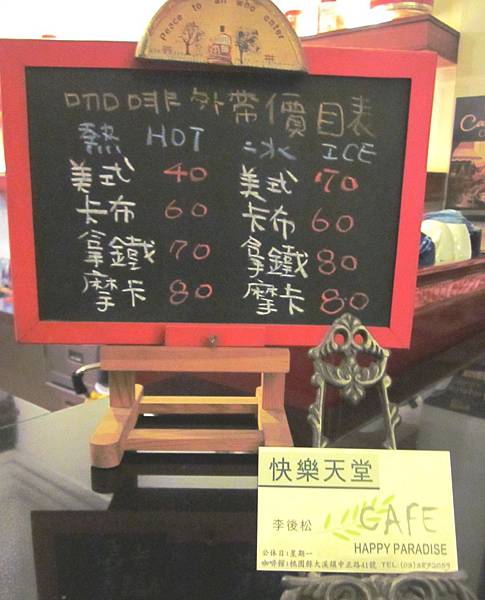 Peace to all who enter
咖啡外帶價目表
熱 HOT 冰 ICE
美式 40 美式 70
卡布 60 卡布 60
拿鐵 70 拿鐵 80
摩卡 80 摩卡 80
快樂天堂
李後松 CAFE
HAPPY PARADISE
公休日:星期一
咖啡館:桃園縣大溪鎮中正路41號 TEL:(03)3872059